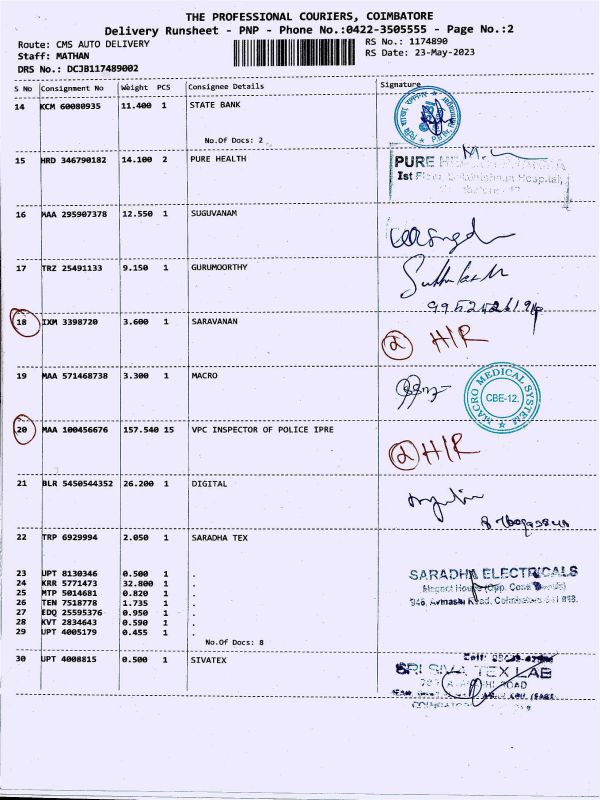 THE PROFESSIONAL COURIERS, COIMBATORE
Delivery Runsheet - PNP - Phone No.:0422-3505555 - Page No.:2
Route: CMS AUTO DELIVERY
RS No.: 1174890
Staff: MATHAN
RS Date: 23-May-2023
DRS No.: DCJB117489002
S No Consignment No Weight PCS Consignee Details Signature
14 KCM 60080935 11.400 1 STATE BANK
No.Of Docs: 2
15 HRD 346790182 14.100 2 PURE HEALTH
PURE
Ist Floor, Hospital,
16 MAA 295907378 12.550 1 SUGUVANAM
17 TRZ 25491133 9.150 1 GURUMOORTHY
18 IXM 3398720 3.600 1 SARAVANAN
H/R
19 MAA 571468738 3.300 1 MACRO
MACRO MEDICAL SYSTEM
CBE-12.
20 MAA 100456676 157.540 15 VPC INSPECTOR OF POLICE IPRE
H/R
21 BLR 5450544352 26.200 1 DIGITAL
22 TRP 6929994 2.050 1 SARADHA TEX
23 UPT 8130346 0.500 1 .
24 KRR 5771473 32.800 1 .
25 MTP 5014681 0.820 1 .
26 TEN 7518778 1.735 1 .
27 EDQ 25595376 0.950 1 .
28 KVT 2834643 0.590 1 .
29 UPT 4005179 0.455 1 .
No.Of Docs: 8
SARADHA ELECTRICALS
Magnet House (Opp.
946, Avinashi Road,
30 UPT 4008815 0.500 1 SIVATEX
SRI SIVA TEX LAB
ROAD